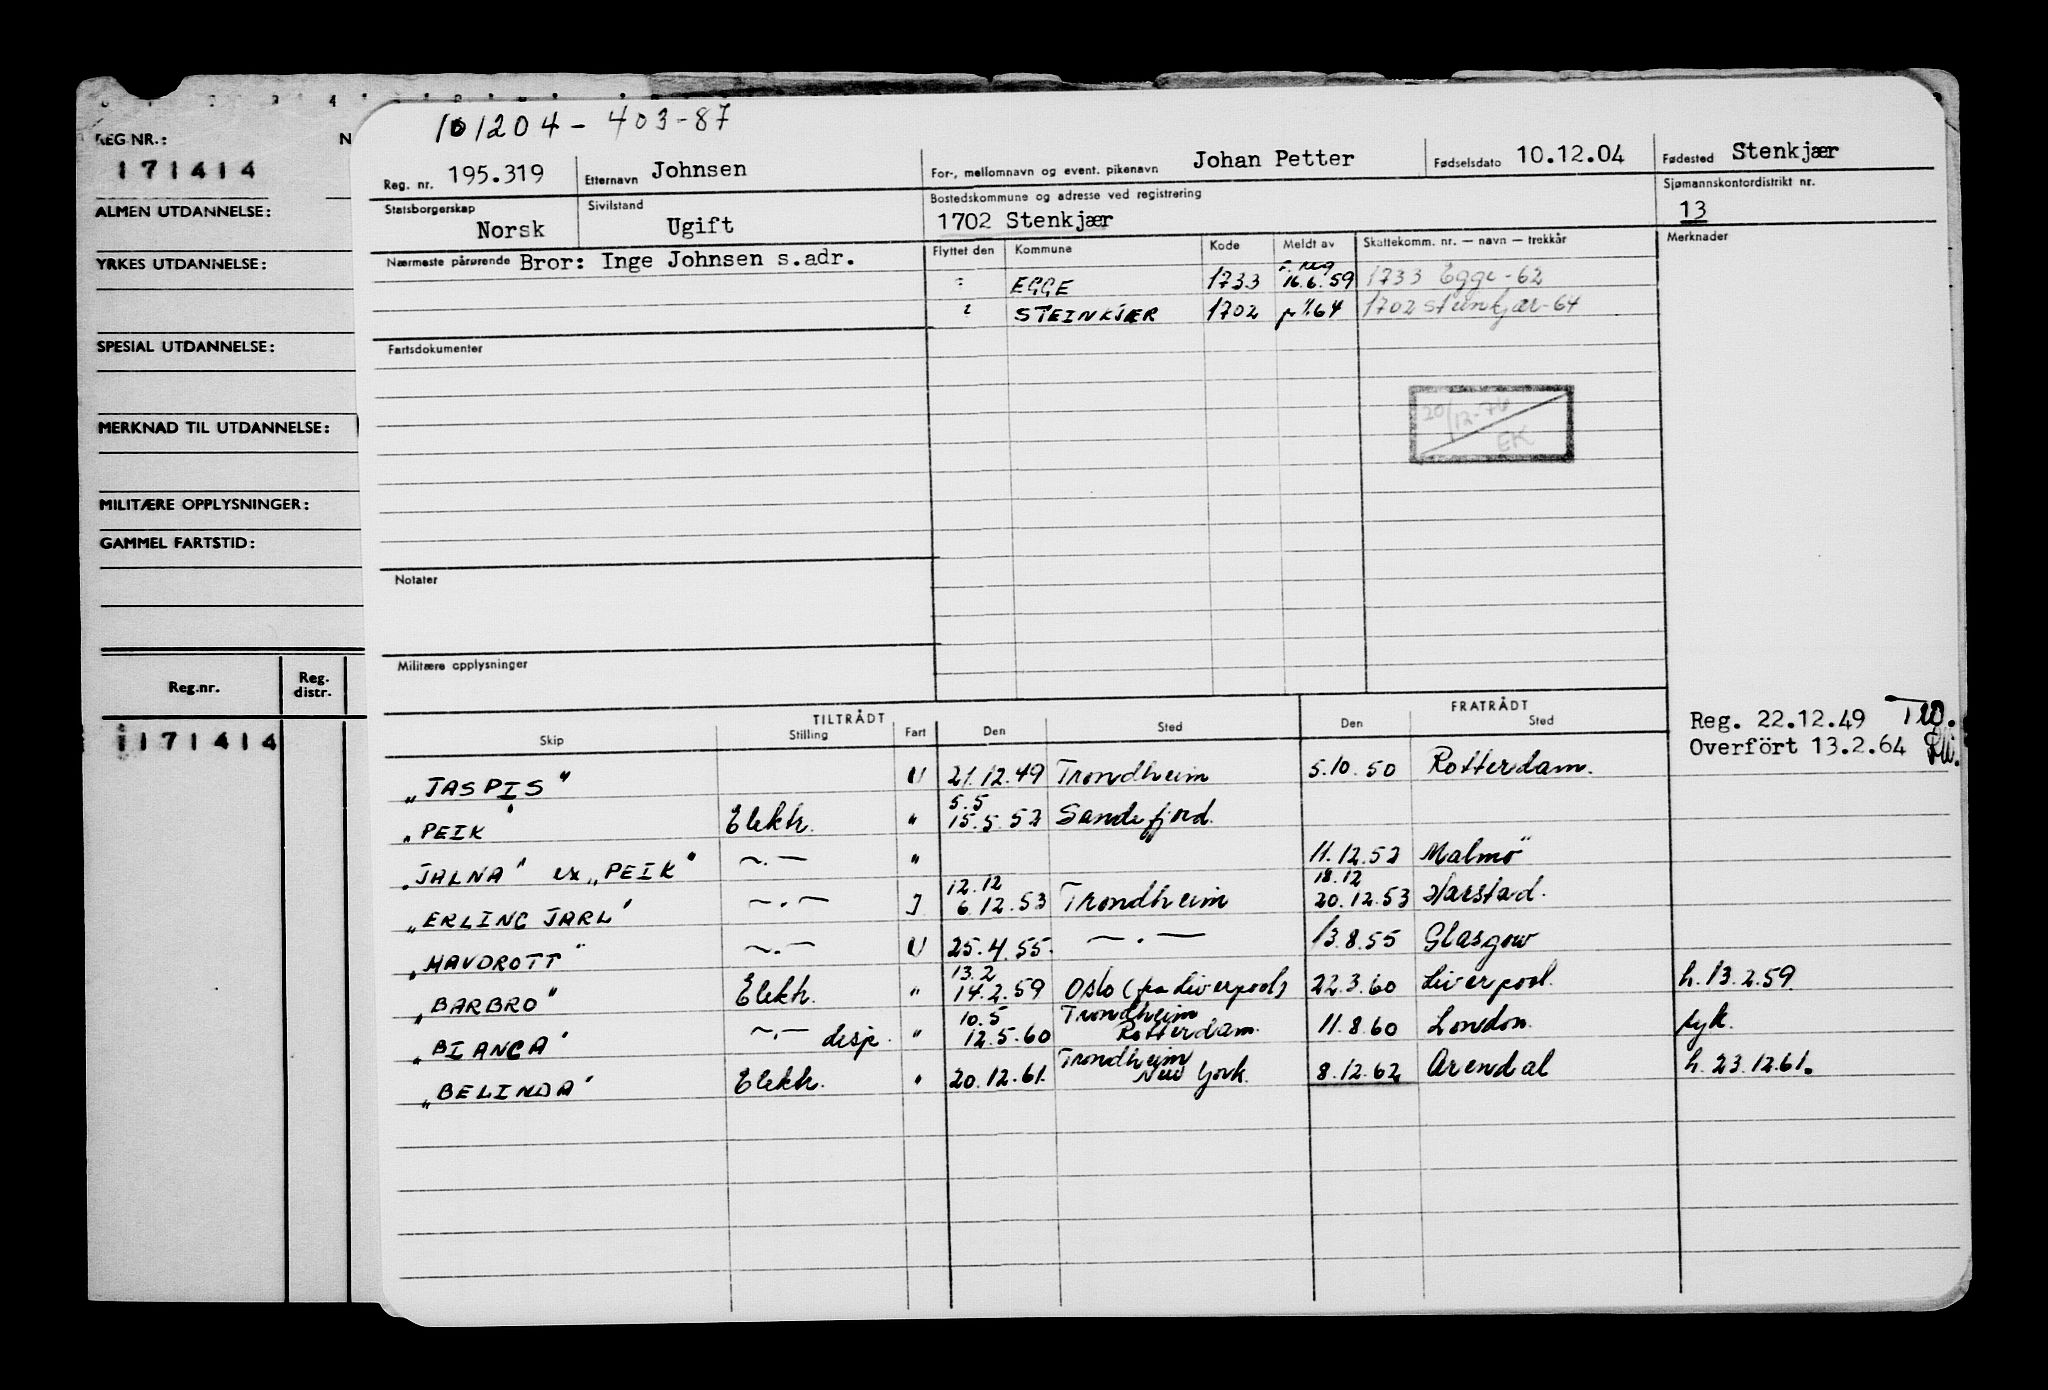 REG NR.:
171414
ALMEN UTDANNELSE:
YRKES UTDANNELSE:
SPESIAL UTDANNELSE:
MERKNAD TIL UTDANNELSE:
MILITÆRE OPPLYSNINGER:
GAMMEL FARTSTID:
Reg.nr. Reg. distr.
171414
101204 - 403-87
Reg. nr. 195.319 Etternavn Johnsen For-, mellomnavn og event. pikenavn Johan Petter Fødselsdato 10.12.04 Fødested Stenkjær
Statsborgerskap Norsk Sivilstand Ugift Bostedskommune og adresse ved registrering 1702 Stenkjær Sjømannskontordistrikt nr. 13
Nærmeste pårørende Bror: Inge Johnsen s.adr. Flyttet den Kommune Kode Meldt av Skattekomm. nr. — navn — trekkår Merknader
EGGE 1733 16.6.59 1733 Egge-62
STEINKJÆR 1702 64 1702 Steinkjær-64
Fartsdokumenter
20/12-76
EK
Notater
Militære opplysninger
TILTRÅDT FRATRÅDT
Skip Stilling Fart Den Sted Den Sted
Reg. 22.12.49
Overført 13.2.64
"JASPIS" U 21.12.49 Trondheim 5.10.50 Rotterdam.
"PEIK" Elektr. " 5.5 15.5.52 Sandefjord.
"JALNA" ex "PEIK" ~.— " 11.12.52 Malmö
"ERLING JARL" ~.— J 12.12 6.12.53 Trondheim 18.12 20.12.53 Harstad.
"HAVDROTT" ~.— U 25.4.55. —.— 13.8.55 Glasgow
"BARBRO" Elektr. " 13.2 14.2.59 Oslo (fra Liverpool) 22.3.60 Liverpool. h. 13.2.59
"BIANCA" ~.— disp. " 10.5 12.5.60 Trondheim Rotterdam. 11.8.60 London. syk.
"BELINDA" Elektr. " 20.12.61. Trondheim New York. 8.12.62 Arendal h. 23.12.61.